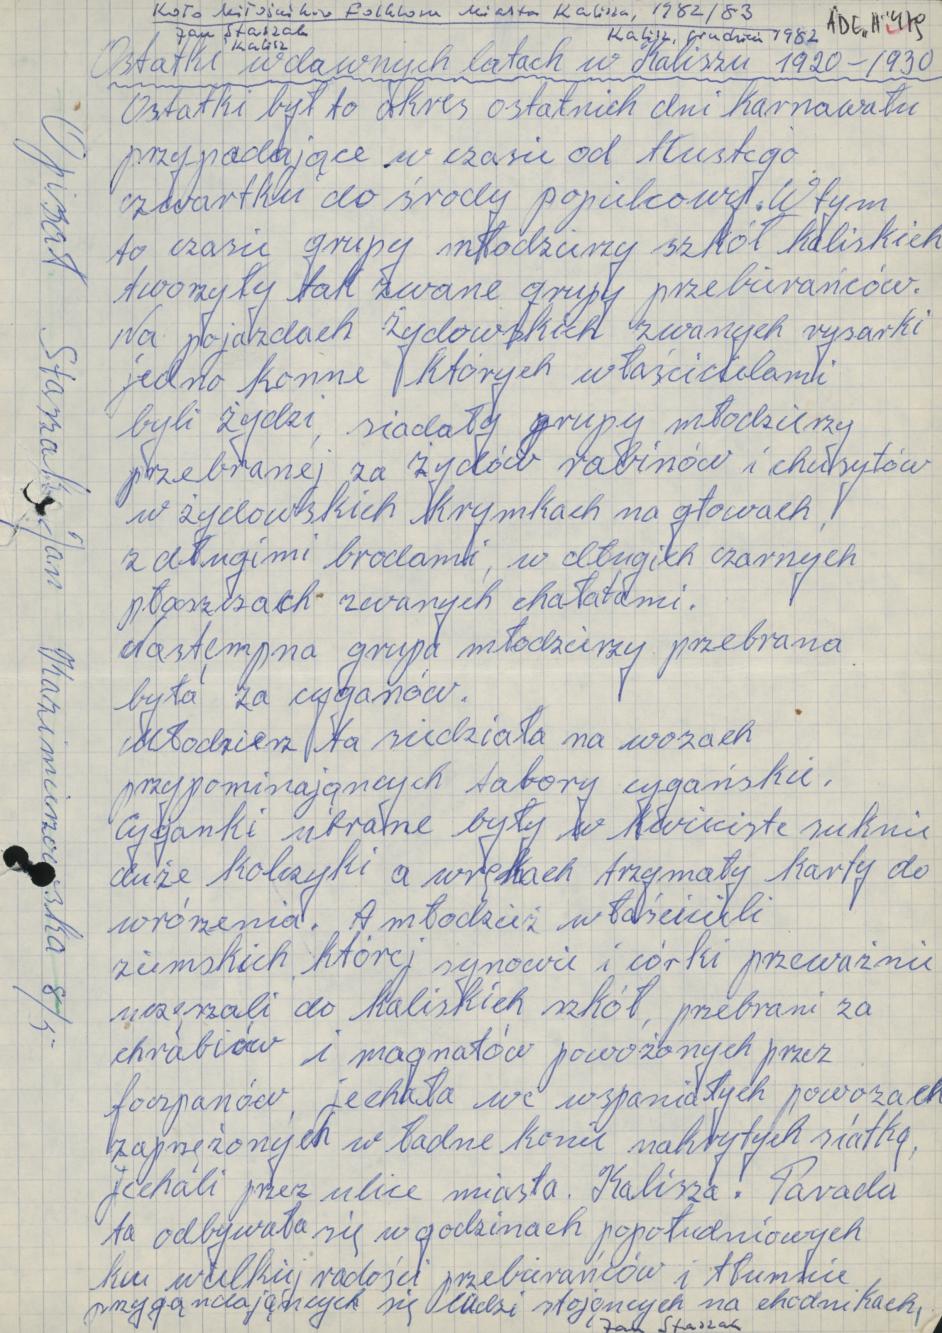 Koło Miłośników Folkloru Miasta Kalisza, 1982/83
Jan Staszak
Kalisz
Kalisz, grudzień 1982
Ostatki w dawnych latach w Kaliszu 1920-1930
Ostatki był to okres ostatnich dni karnawału
przypadające w czasie od tłustego
czwartku do środy popielcowej. W tym
to czasie grupy młodzierzy szkół kaliskich
tworzyły tak zwane grupy przebierańców.
Na pojazdach żydowskich zwanych rysarki
jedno konne których właścicielami
byli żydzi, siadały grupy młodzierzy
przebranej za żydów rabinów i chusytów
w żydowskich krymkach na głowach,
z długimi brodami, w długich czarnych
płaszczach zwanych chałatami.
Następna grupa młodzierzy przebrana
była za cyganów.
Młodzierz ta siedziała na wozach
przypominających tabory cygańskie.
Cyganki ubrane były w kwieciste suknie
duże kolczyki a wrękach trzymały karty do
wrórzenia. A młodzież właścicieli
ziemskich której synowie i córki przeważnie
uczęszali do kaliskich szkół, przebrani za
chrabiów i magnatów powożonych przez
forzpanów, jechała we wspaniałych powozach
zaprzężonych w ładne konie nakrytych siatką,
jechali przez ulice miasta. Kalisza. Parada
ta odbywała się w godzinach popołudniowych
ku wielkiej radości przebierańców i tłumnie
przyglądających się ludzi stojących na chodnikach,
Jan Staszak
Opisał Staszak Jan Kazimierzowska 8/5.